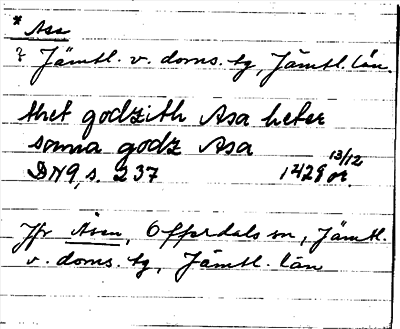 * Åsa
? Jämtl. v. doms. tg, Jämtl. län.
thet godzith Asa heter
somma godz Asa
DN9, s. 237 1429 13/12 or.
Jfr Åsen, Offerdals sn, Jämtl.
v. doms. tg, Jämtl. län